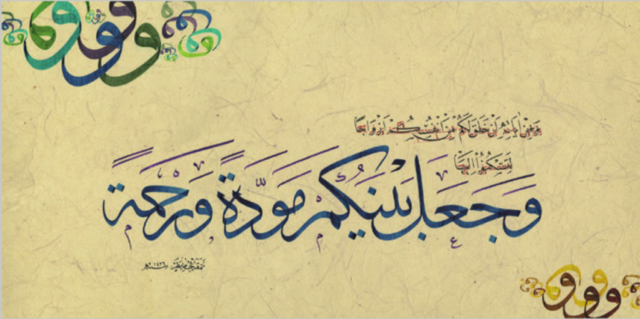 ومن آياته أن خلق لكم من أنفسكم أزواجا
لتسكنوا إليها
وَجَعَلَ بَيْنَكُمْ مَوَدَّةً وَرَحْمَةً